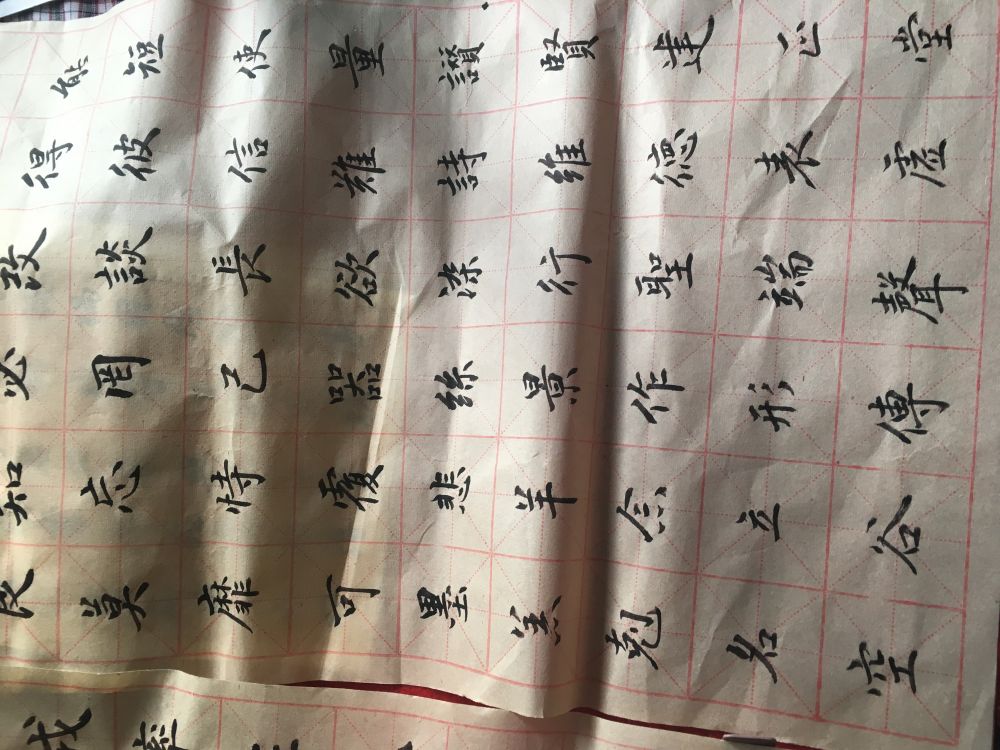 良知必改得能
莫忘罔談彼短
靡恃己長信使
可覆器欲難量
墨悲絲染詩讚
羔羊景行維賢
剋念作聖德建
名立形端表正
空谷傳聲虛堂